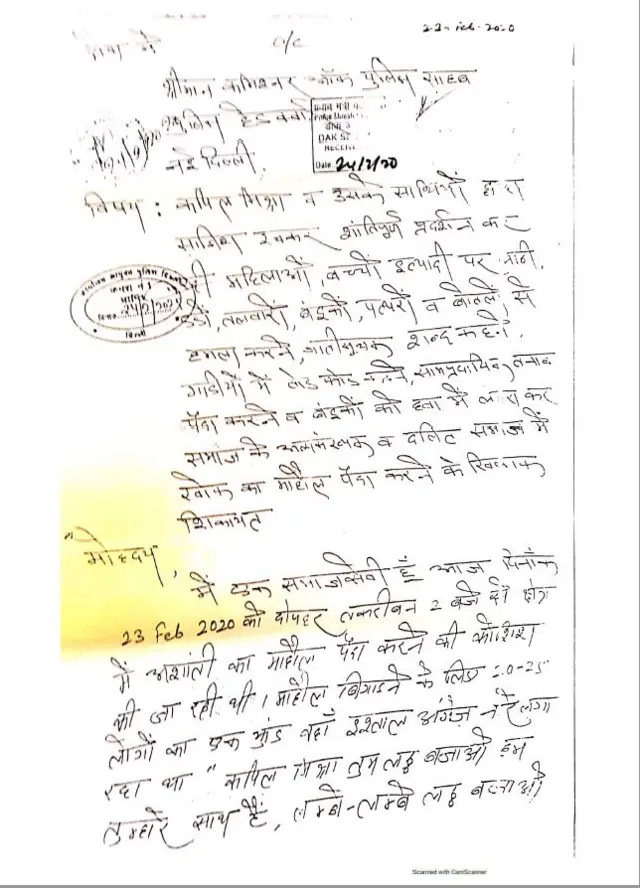 22 - Feb - 2020
O/C
सेवा में
श्रीमान कमिश्नर ऑफ पुलिस साहब
पुलिस हेड क्वा
नई दिल्ली
प्रधान मंत्री का
Prime Minist
DAK S
RECEIV
Date 24/2/20
विषय : कपिल मिश्रा व उसके साथियों द्वारा
साजिश रचकर शांतिपूर्ण प्रदर्शन कर
रही महिलाओं, बच्चों इत्यादी पर लाठी,
डंडों, तलवारों, बंदूकों, पत्थरों व बोतलों से
हमला करने, जातीसूचक शब्द कहने,
गाडीयों में तोड फोड करने, साम्प्रदायिक तनाव
पैदा करने व बंदूकों को हवा में लहरा कर
समाज के अल्पसंख्यक व दलित समाज में
खौफ का माहौल पैदा करने के खिलाफ
शिकायत
कार्यालय आयुक्त पुलिस दिल्ली
कमरा नं. 1
प्राप्ति
दिनांक 24/2/2020
दिल्ली
"मोहदय",
में एक समाजसेवी हूँ आज दिनाँक
23 Feb 2020 को दोपहर तकरीबन 2 बजे क्षेत्र
में अशांती का माहौल पैदा करने की कोशिश
की जा रही थी। माहौल बिगाडने के लिए 20-25
लोगों का एक झुंड वहाँ इश्ताल अंगेज नारे लगा
रहा था "कपिल मिश्रा तुम लठ्ठ बजाओ हम
तुम्हारे साथ हैं, लम्बे-लम्बे लठ्ठ बजाओ
Scanned with CamScanner